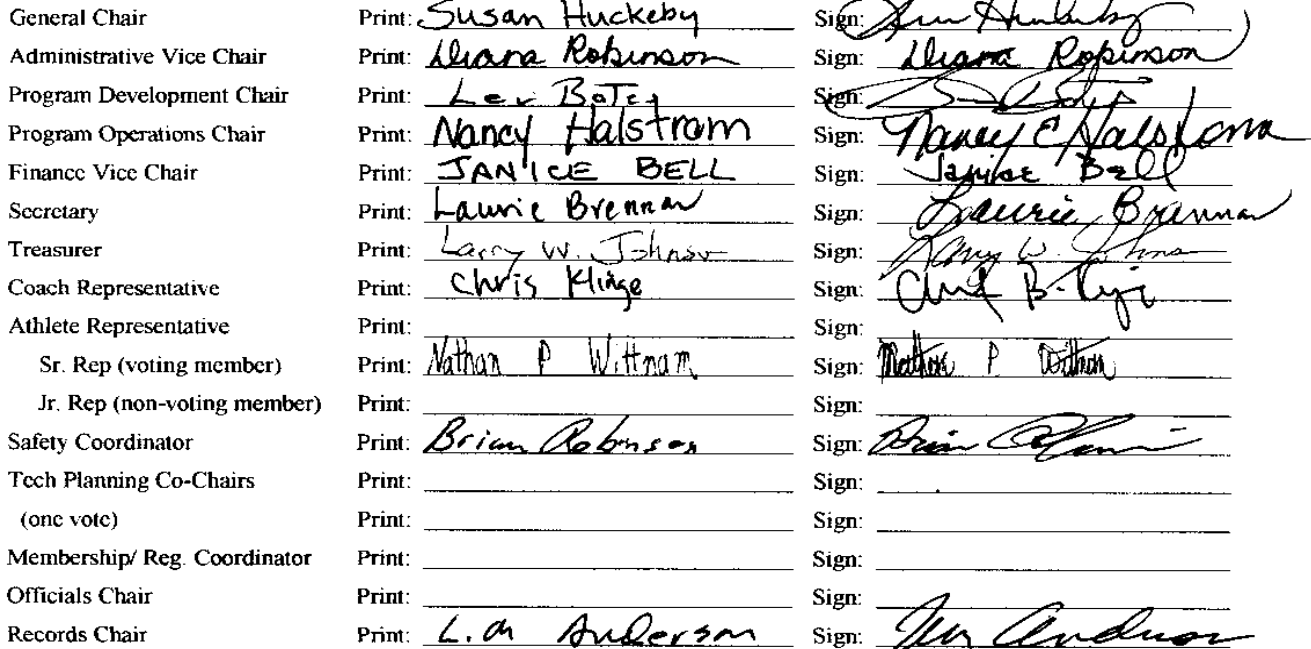 General Chair Print: Susan Huckeby Sign:
Administrative Vice Chair Print: Diana Robinson Sign: Diana Robinson
Program Development Chair Print: Sign:
Program Operations Chair Print: Nancy Halstrom Sign: Nancy E Halstrom
Finance Vice Chair Print: JANICE BELL Sign: Janice Bell
Secretary Print: Laurie Brennan Sign: Laurie Brennan
Treasurer Print: Larry W. Johnson Sign: Larry W.
Coach Representative Print: Chris Klinge Sign:
Athlete Representative Print: Sign:
Sr. Rep (voting member) Print: Nathan P Wittnam Sign: P
Jr. Rep (non-voting member) Print: Sign:
Safety Coordinator Print: Brian Robinson Sign: Brian
Tech Planning Co-Chairs Print: Sign:
(one vote) Print: Sign:
Membership/ Reg. Coordinator Print: Sign:
Officials Chair Print: Sign:
Records Chair Print: Anderson Sign: Anderson